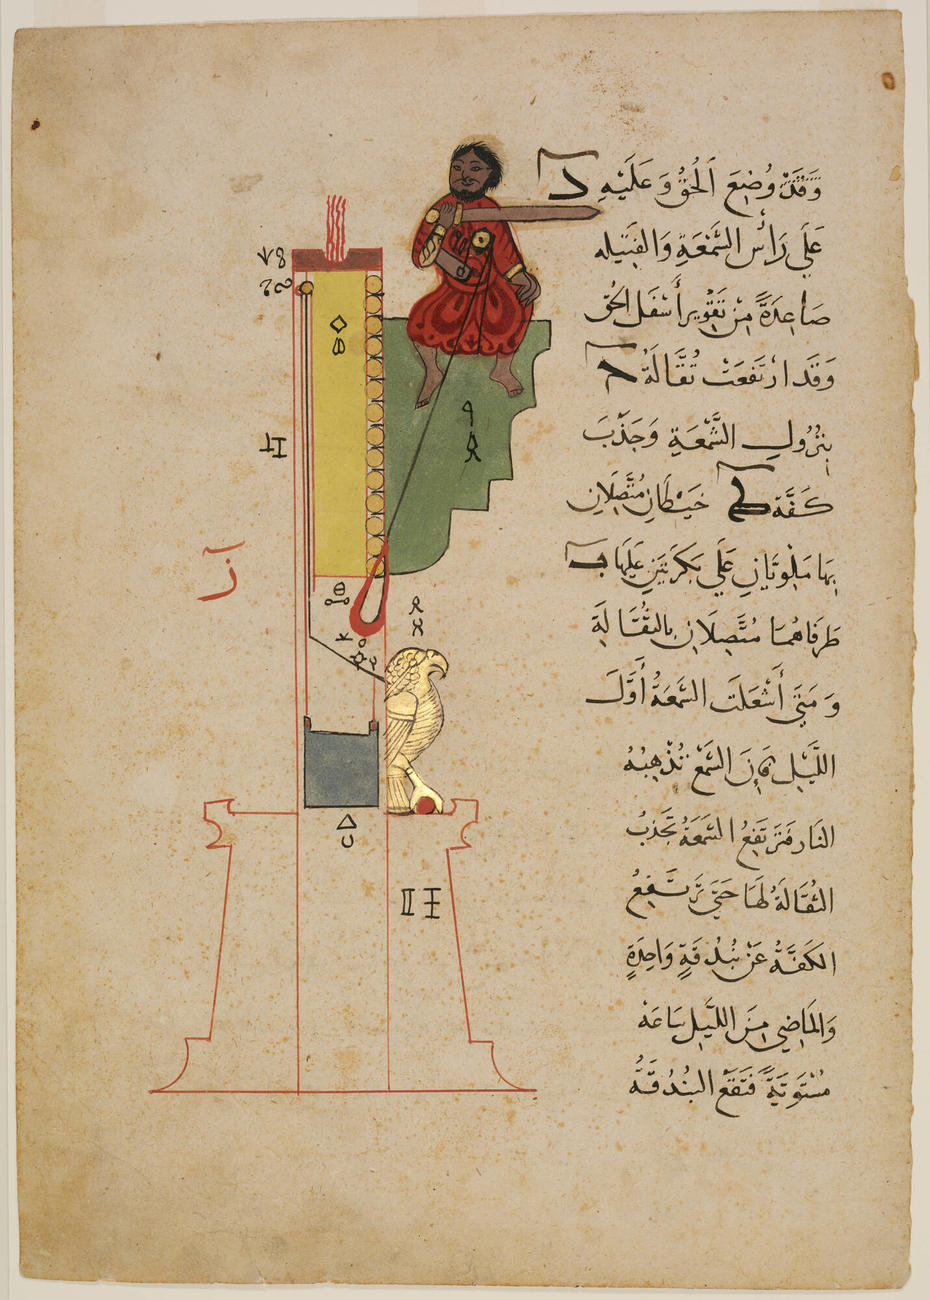 وَقَدْ وُضِعَ الْحُقُّ وَعَلَيْهِ
عَلَى رَأْسِ الشَّمْعَةِ وَالفَتِيله
صَاعِدَةً مِنْ تَقْوِير أَسْفَل الحُق
وَقَد ارْتَفَعَتْ ثُقَّالَةُ
بِنُزُولِ الشَّمْعَةِ وَجَذْبِ
كَفَّة خَيْطَانِ مُتَّصِلَانِ
بِهَا مَلْوِيَّانِ عَلَى بَكَرَتَيْنِ عَلَيْهَا
طَرَفَاهُمَا مُتَّصِلَانِ بِالثُّقَّالَةِ
وَمَتَى أَشْعَلَت الشَّمْعَةُ أَوَّلَ
اللَّيْلِ كَانَ الشَّمْعُ تُذْهِبُهُ
النَّار فَتَرْتَفِعُ الشَّمْعَةُ تَجْذِبُ
الثُّقَّالَةُ لَهَا حَتَّى تَرْتَفِعُ
الكَفَّةُ عَنْ بُنْدُقَةٍ وَاحِدَةٍ
وَالْمَاضِي مِنَ اللَّيْلِ سَاعَة
مُسْتَوِيَّةً فَتَقَعُ البُنْدُقَةُ
ز